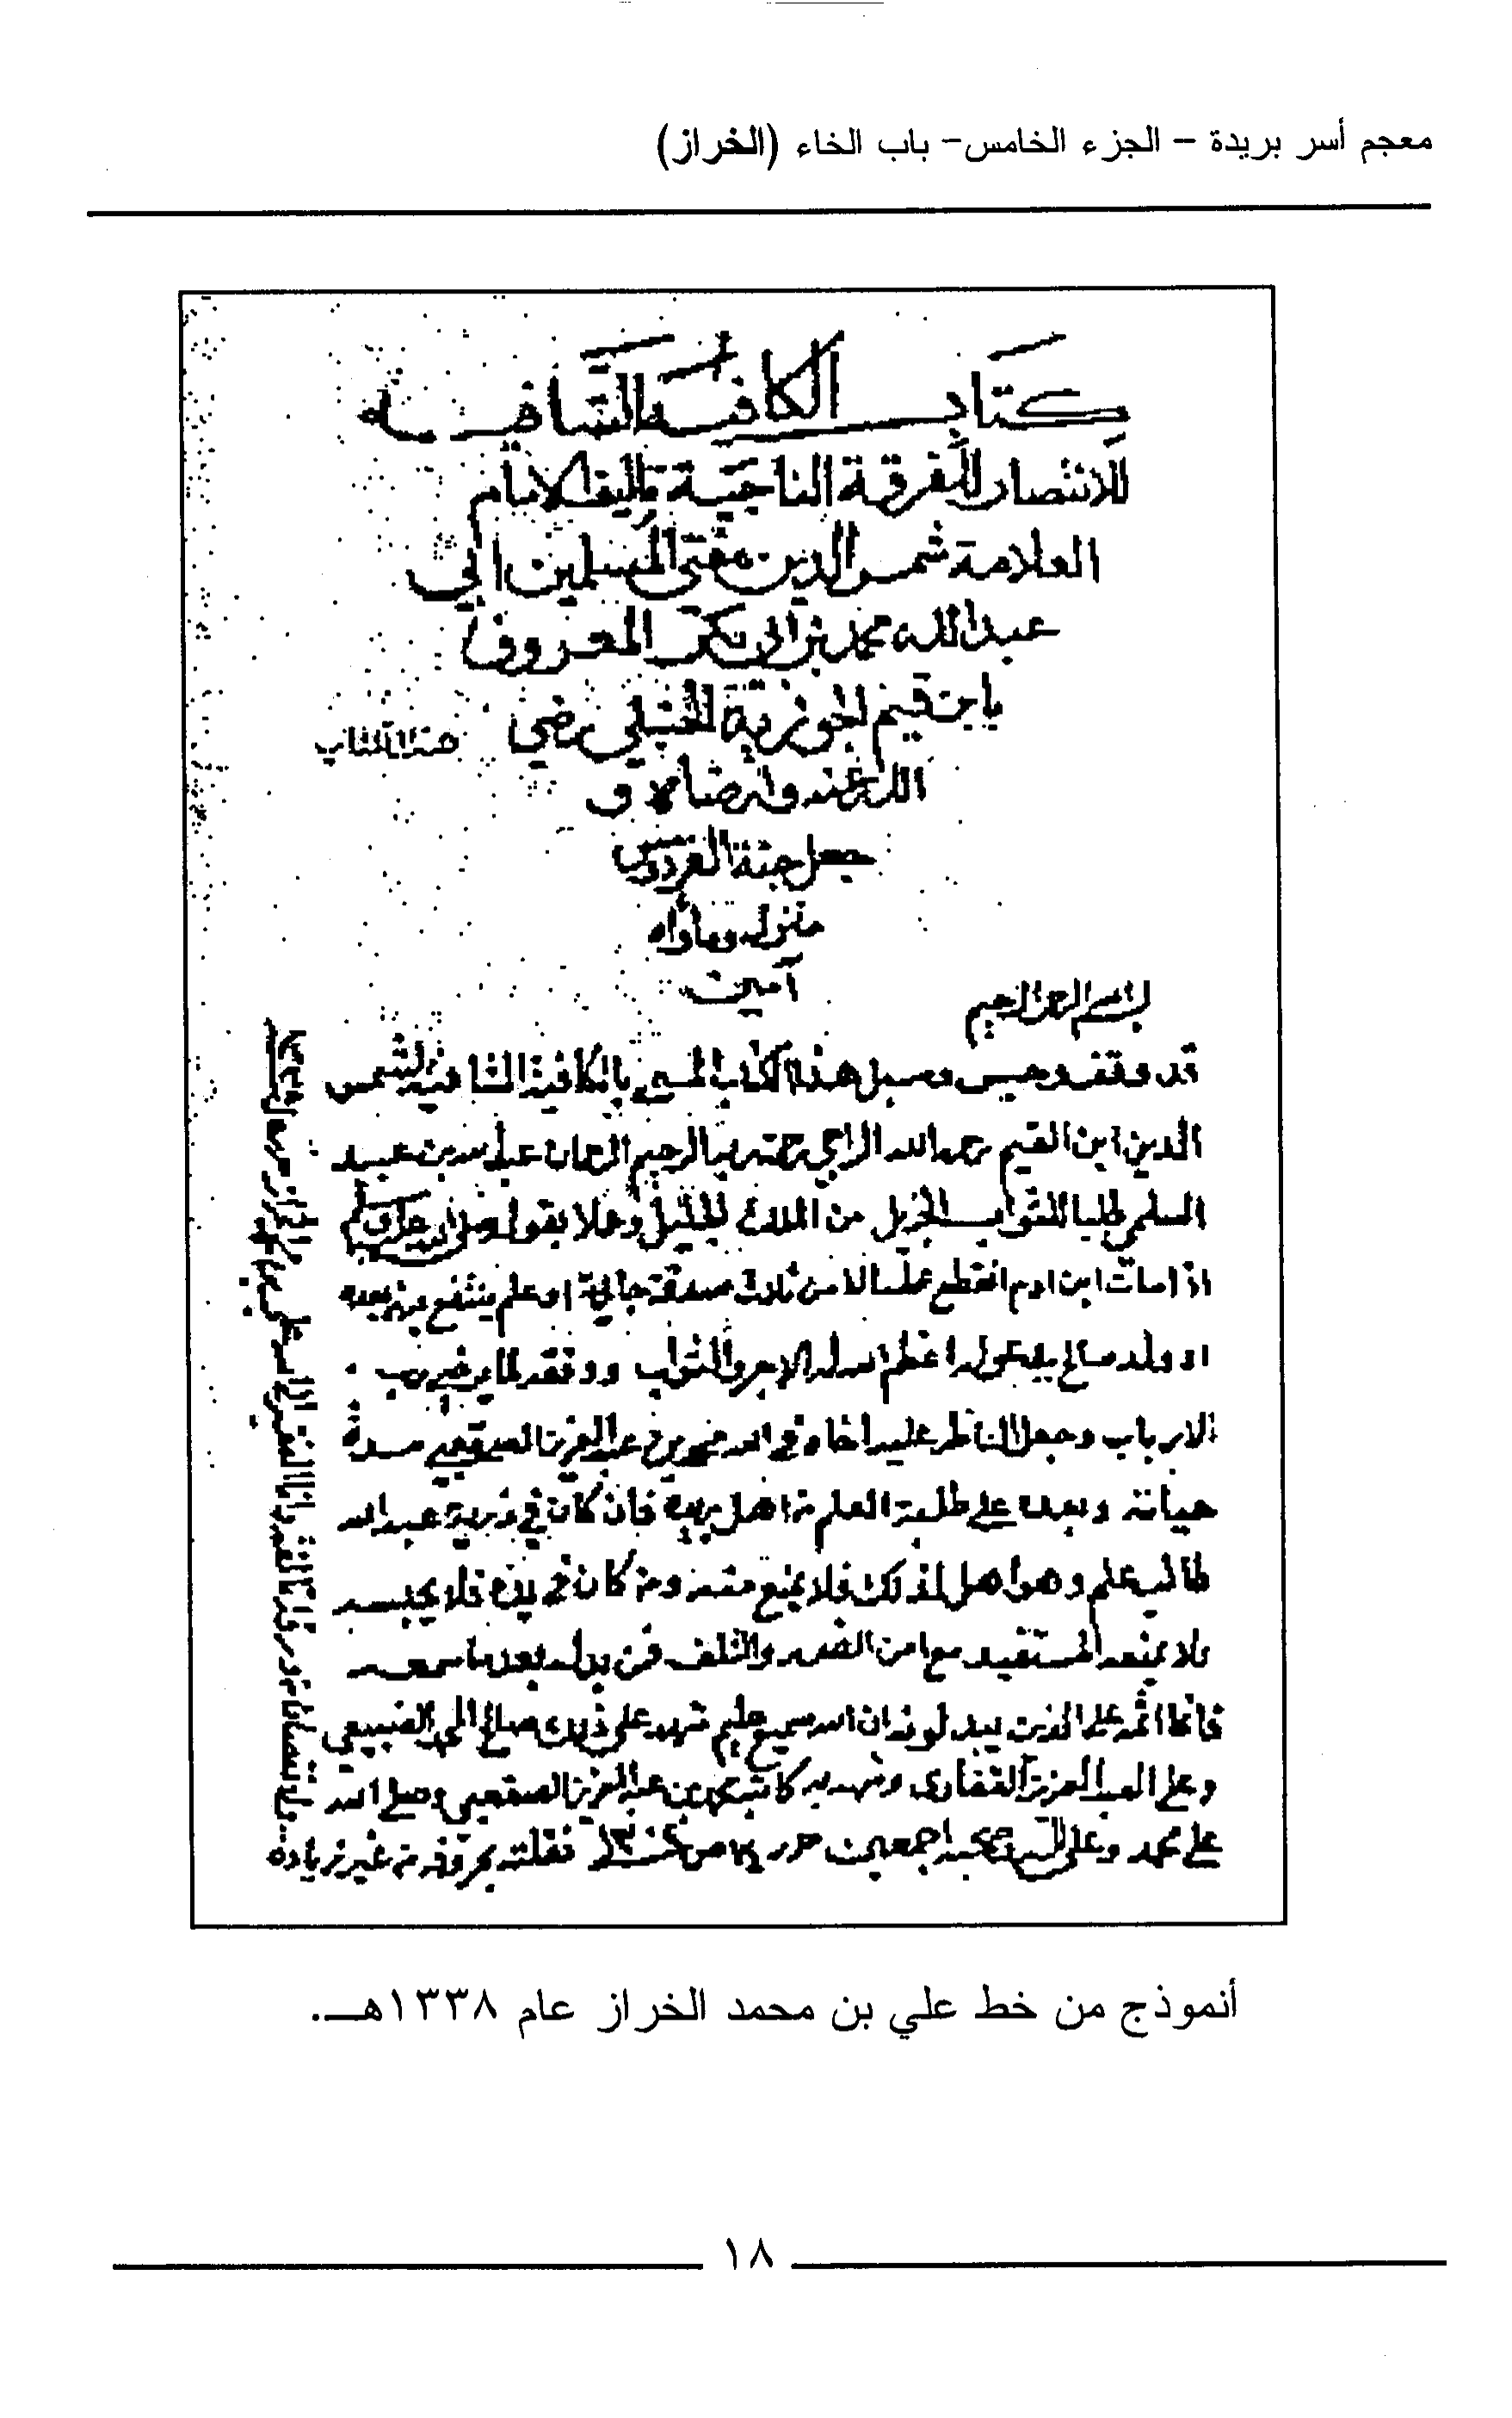 معجم أسر بريدة – الجزء الخامس– باب الخاء (الخراز)
كتاب الكافية الشافية
للانتصار للفرقة الناجية تأليف الامام
العلامة شمس الدين مفتي المسلمين ابي
عبد الله محمد بن ابي بكر المعروف
بابن قيم الجوزية الحنبلي رضي
هذا الكتاب
الله عنه وارضاه و
جعل جنة الفردوس
منزله ومأواه
آمين
بسم الله الرحمن الرحيم
قد وقف وحبس وسبل هذا الكتاب المسمى بالكافية الشافية لشمس
الدين ابن القيم رحمه الله الراجي رحمة ربه الرحيم الرحمان عبد الله بن عبيد
السلمي طلبا للثواب الجزيل من الملك الجليل وعملا بقوله صلى الله عليه وسلم
اذا مات ابن ادم انقطع عمله الا من ثلاث صدقة جارية او علم ينتفع به من بعده
او ولد صالح يدعو له اعظم الله له الاجر والثواب ووفقه لما يرضي رب
الارباب وجعل الناظر عليه اخاه في الله بن عبد العزيز الصقعبي مدة
حياته وبعده على طلبة العلم من اهل بريدة فان كان في ذرية عبد الله
طالب علم وهو اهل لذلك فلا يمنع منه ومن كان في يده فلا يحبسه
ولا يمنعه المستفيد مع امن الضرر والتلف فمن بدله بعد ما سمعه
فانما اثمه على الذين يبدلونه ان الله سميع عليم شهد على ذلك صالح الضبيعي
وعلي العبد العزيز الغضاري وشهد به كاتبه بن عبد العزيز الصقعبي وصلى الله
على محمد وعلى اله وصحبه اجمعين حرر نقلته بحروفه من غير زيادة
ولا نقصان وانا الفقير الى الله علي بن محمد الخراز
أنموذج من خط علي بن محمد الخراز عام ١٣٣٨هـ.
١٨